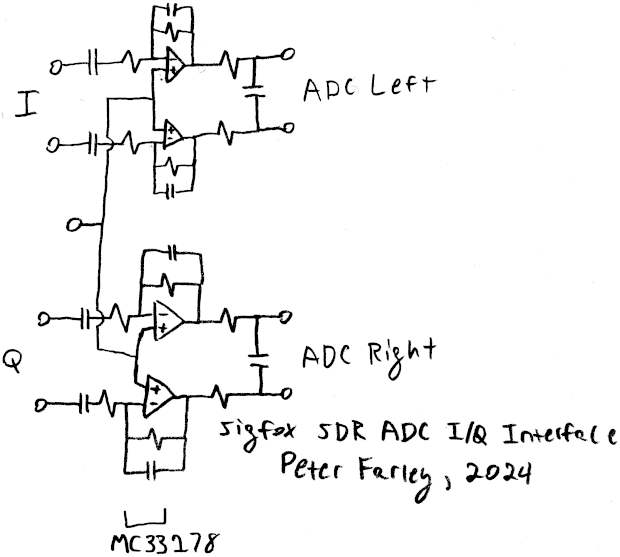 I
ADC Left
Q
ADC Right
Sigfox SDR ADC I/Q Interface
Peter Farley, 2024
MC33178